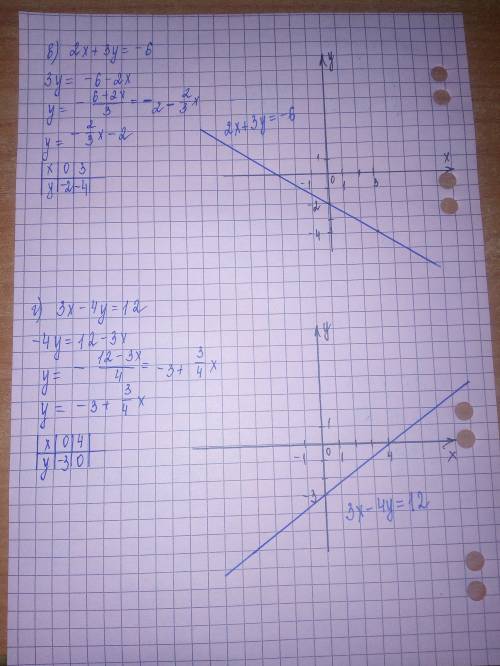 в) 2x+3y=-6
3y= -6-2x
y= -(6+2x)/3 = -2-2/3x
y= -2/3x-2
x 0 3
y -2 -4
y
2x+3y=-6
x
1
-1 0 1 3
-2
-4
г) 3x-4y=12
-4y=12-3x
y= -(12-3x)/4 = -3+3/4x
y= -3+3/4x
x 0 4
y -3 0
y
1
-1 0 1 4 x
-3
3x-4y=12